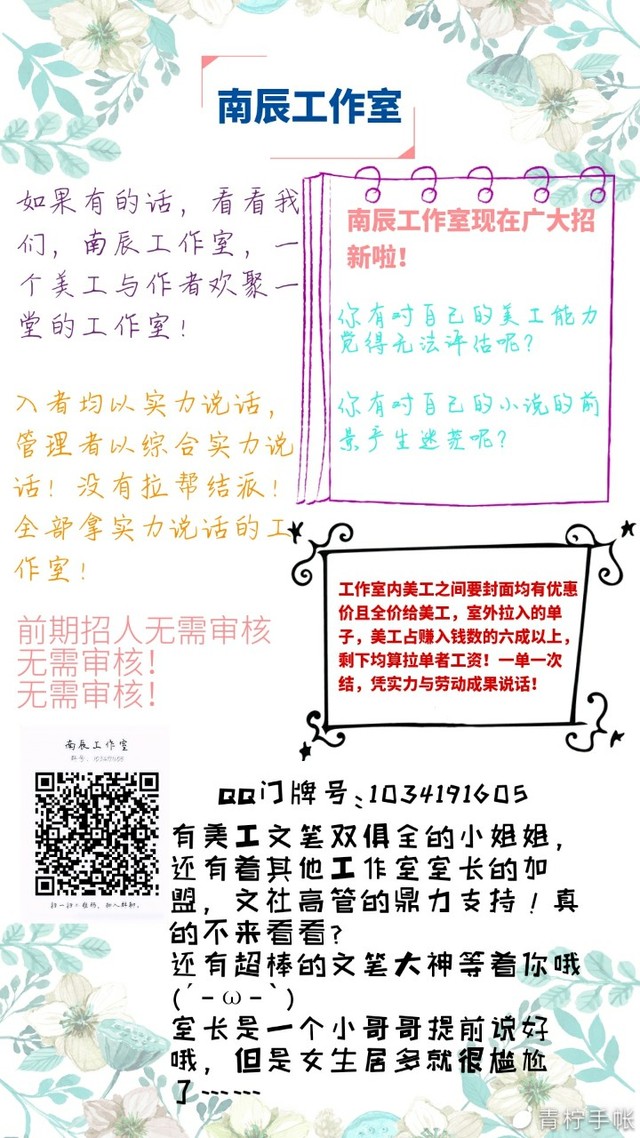 南辰工作室
如果有的话，看看我
们，南辰工作室，一
个美工与作者欢聚一
堂的工作室！
南辰工作室现在广大招
新啦！
你有对自己的美工能力
觉得无法评估呢？
你有对自己的小说的前
景产生迷茫呢？
入者均以实力说话，
管理者以综合实力说
话！没有拉帮结派！
全部拿实力说话的工
作室！
工作室内美工之间要封面均有优惠
价且全价给美工，室外拉入的单
子，美工占赚入钱数的六成以上，
剩下均算拉单者工资！一单一次
结，凭实力与劳动成果说话！
前期招人无需审核
无需审核！
无需审核！
南辰工作室
QQ门牌号：1034191605
有美工文笔双俱全的小姐姐，
还有着其他工作室室长的加
盟，文社高管的鼎力支持！真
的不来看看？
还有超棒的文笔大神等着你哦
(´-ω-`)
室长是一个小哥哥提前说好
哦，但是女生居多就很尴尬
了……
青柠手帐